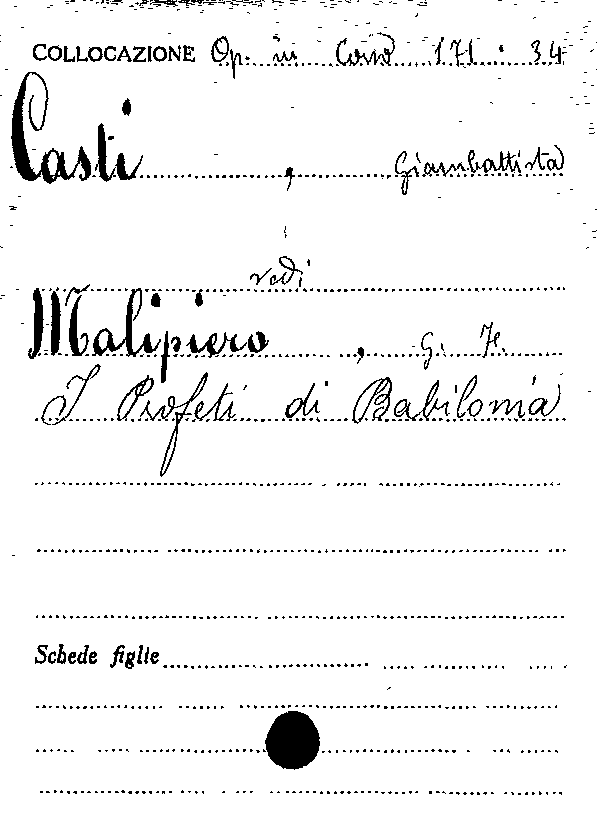 COLLOCAZIONE Op. in Corso 171 . 34
Casti , Giambattista
vedi
Malipiero , G. Fr.
I Profeti di Babilonia
Schede figlie